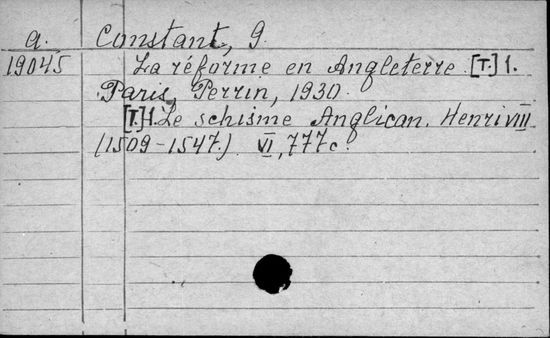 a. Constant, G.
19045 La réforme en Angleterre. [T.] 1.
Paris, Perrin, 1930.
[T.] 1. Le schisme Anglican. Henri VIII
(1509-1547.) VI, 777 c.